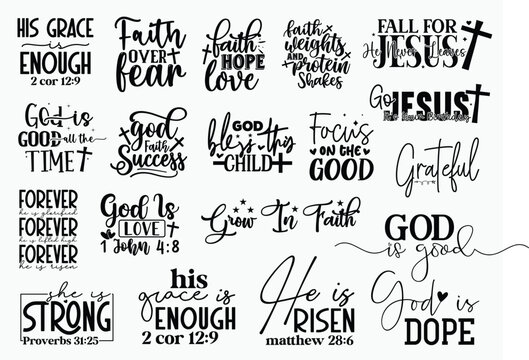 HIS GRACE
IS
ENOUGH
2 cor 12:9
Faith
OVER
fear
faith
HOPE
love
faith
weights
AND
protein
Shakes
FALL FOR
JESUS
He Never Leaves
God is
GOOD all the
TIME
god
Faith
Success
GOD
bless thy
CHILD
Focus
ON THE
GOOD
Go
JESUS
Grateful
FOREVER
he is glorified
FOREVER
he is lifted high
FOREVER
he is risen
God Is
LOVE
1 John 4:8
Grow In Faith
GOD
is good
she is
STRONG
Proverbs 31:25
his
grace is
ENOUGH
2 cor 12:9
He is
RISEN
matthew 28:6
God is
DOPE